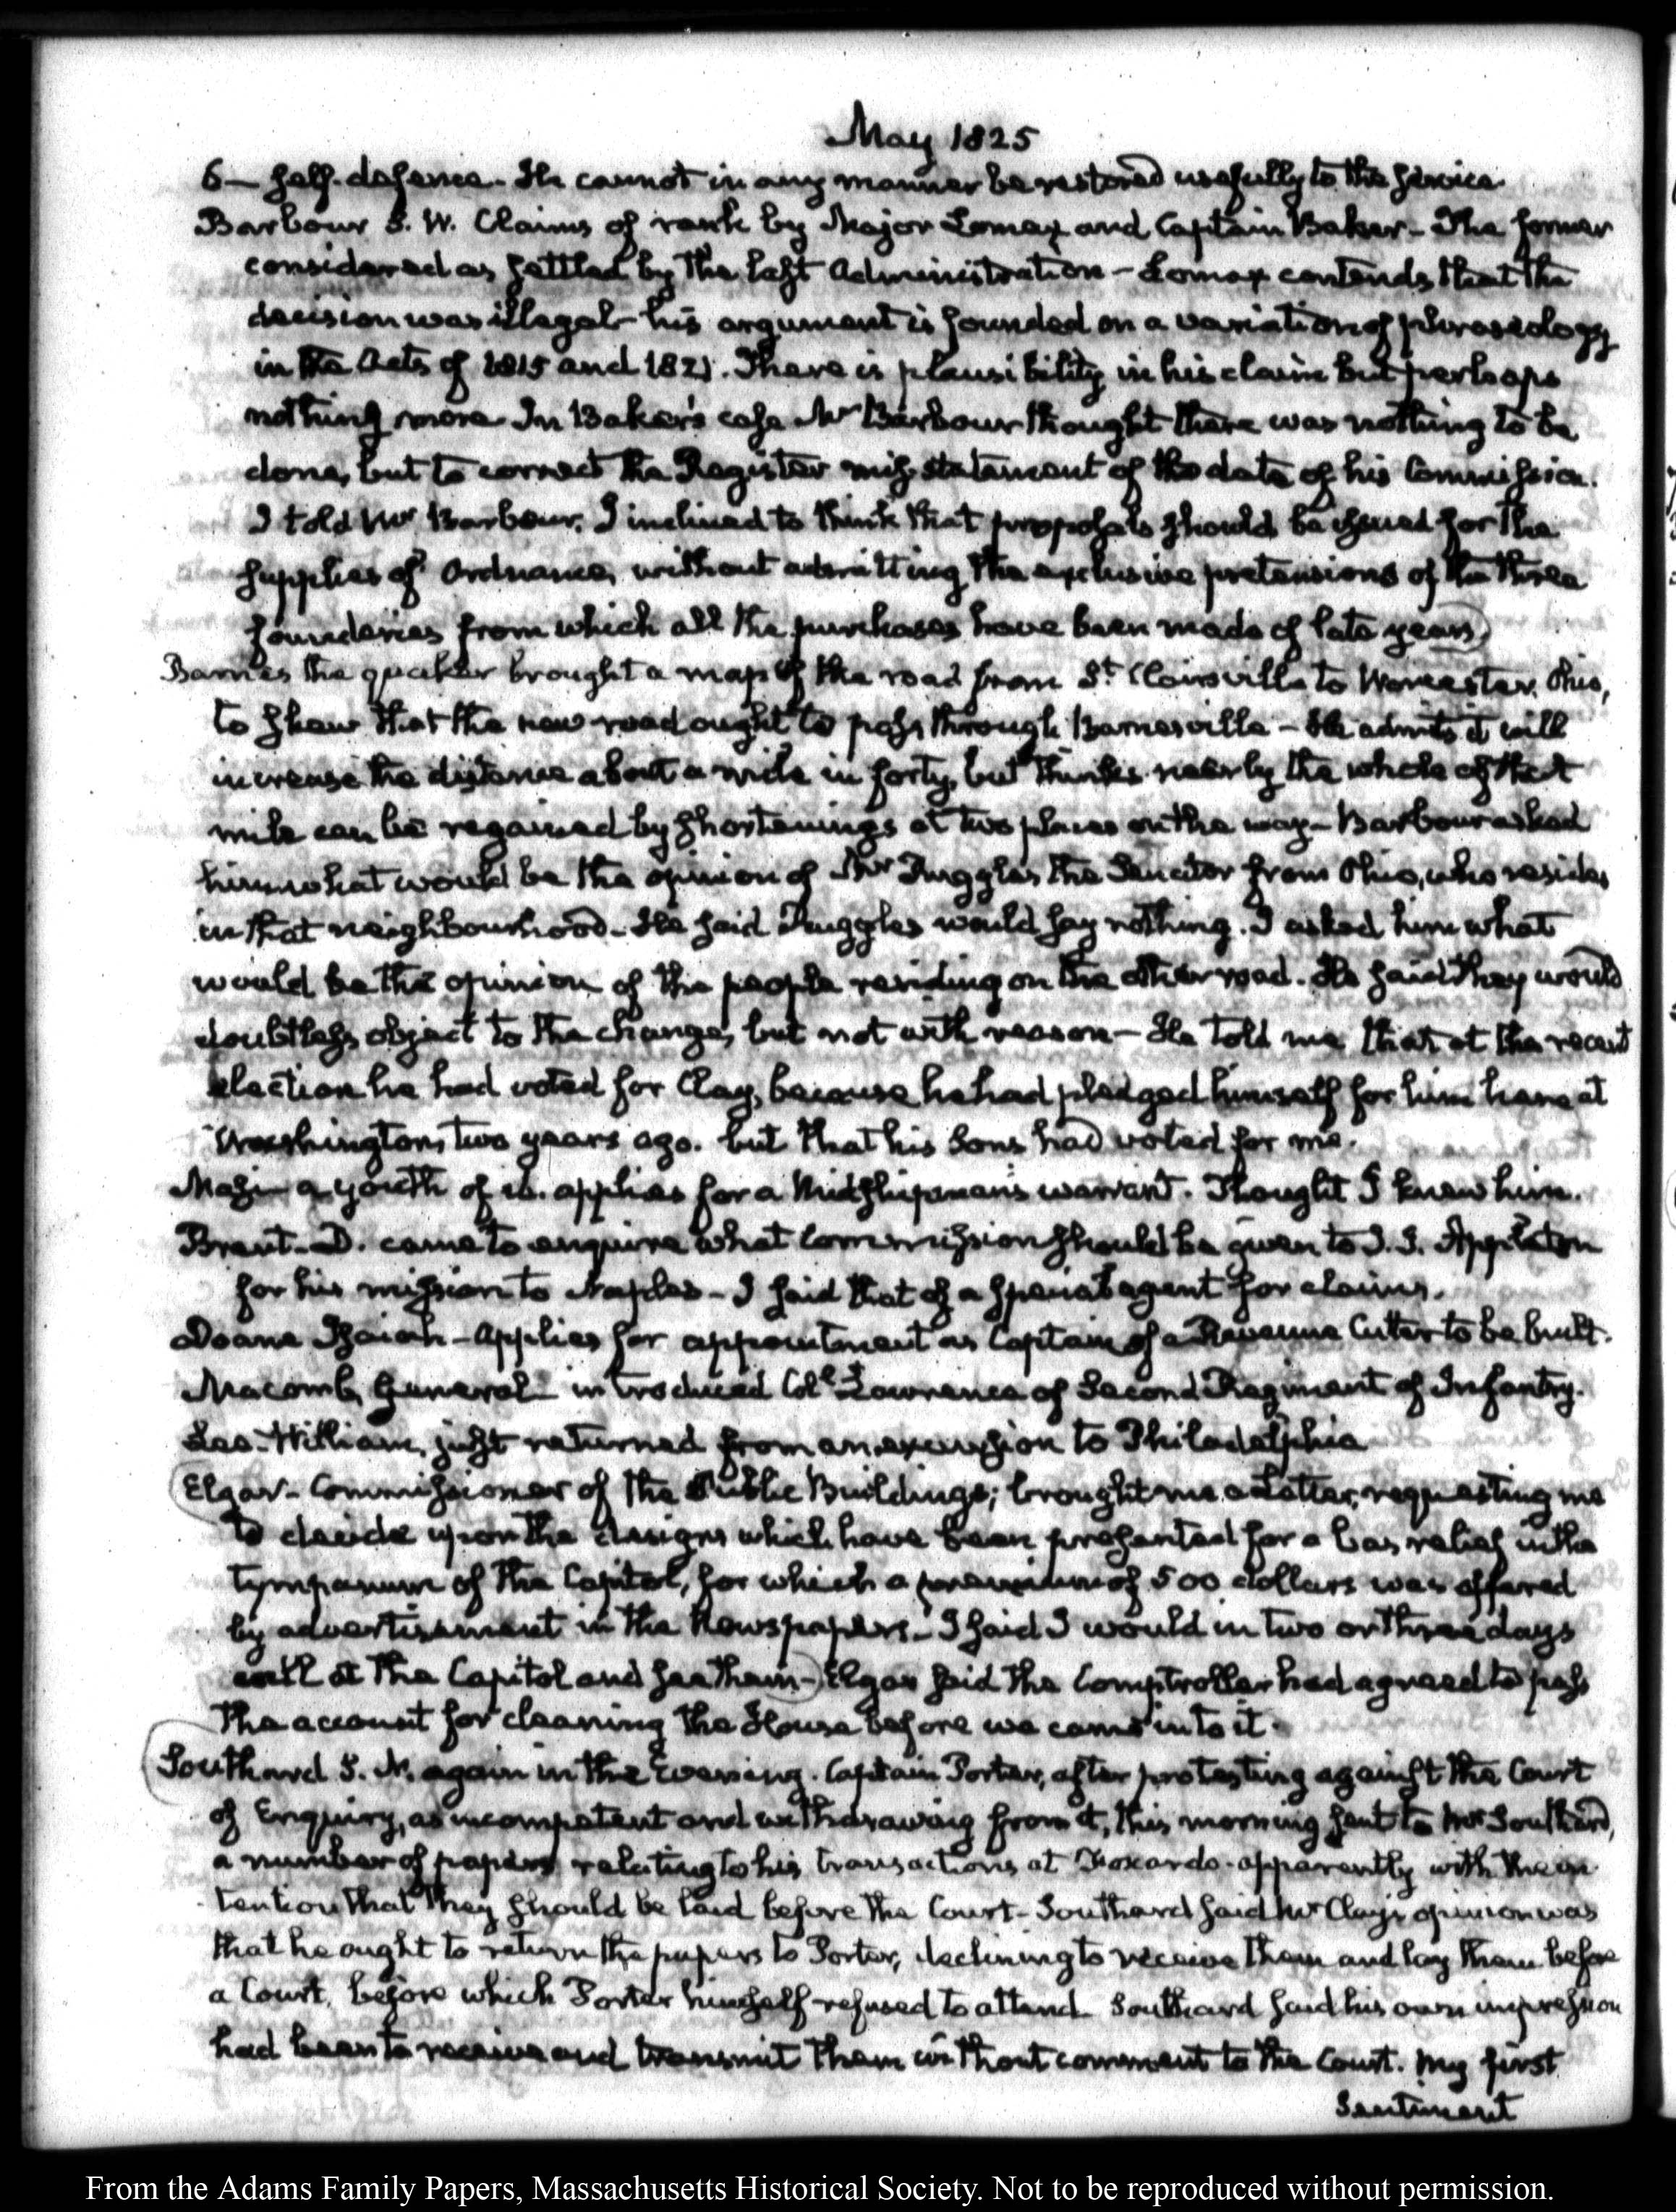 May 1825
6— self-defence. He cannot in any manner be restored usefully to the service.
Barbour S. W. Claims of rank by Major Lomax and Captain Baker — The former
considered as settled by the last Administration — Lomax contends that the
decision was illegal — his argument is founded on a variation of phraseology
in the Acts of 1815 and 1821. There is plausibility in his claim but perhaps
nothing more. In Baker's case Mr Barbour thought there was nothing to be
done, but to correct the Register mis-statement of the date of his Commission.
I told Mr Barbour, I inclined to think that proposals should be issued for the
supplies of Ordnance, without admitting the exclusive pretensions of the three
founderies from which all the purchases have been made of late years)
Barnes the quaker brought a map of the road from St Clairsville to Worcester, Ohio,
to shew that the new road ought to pass through Barnesville — He admits it will
increase the distance about a mile in forty, but thinks nearly the whole of that
mile can be regained by shortenings at two places on the way — Barbour asked
him what would be the opinion of Mr Ruggles the Senator from Ohio, who resides
in that neighbourhood — He said Ruggles would say nothing. I asked him what
would be the opinion of the people residing on the other road. He said they would
doubtless object to the change, but not with reason — He told me that at the recent
election he had voted for Clay, because he had pledged himself for him here at
Washington, two years ago. but that his Sons had voted for me.
a youth of applies for a Midshipman's warrant. Thought I knew him.
Brent. D. came to enquire what Commission should be given to J. J. Appleton
for his mission to Naples — I said that of a special agent for claims.
Doane Isaiah — Applies for appointment as Captain of a Revenue Cutter to be built.
Macomb, General introduced Coll Lawrence of Second Regiment of Infantry.
Lee. William, just returned from an excursion to Philadelphia
(Elgar — Commissioner of the Public Buildings; brought me a Letter, requesting me
to decide upon the designs which have been presented for a bas relief in the
tympanum of the Capitol, for which a premium of 500 dollars was offered
by advertisement in the Newspapers — I said I would in two or three days
call at the Capitol and see them —) Elgar said the Comptroller had agreed to pass
the account for cleaning the House before we came into it.
(Southard S. N. again in the Evening. Captain Porter, after protesting against the Court
of Enquiry, as incompetent and withdrawing from it, this morning sent to Mr Southard,
a number of papers relating to his transactions at Foxardo. apparently with the in
tention that they should be laid before the Court — Southard said Mr Clay's opinion was
that he ought to return the papers to Porter, declining to receive them and lay them before
a Court, before which Porter himself refused to attend. Southard said his own impression
had been to receive and transmit them without comment to the Court. My first
Sentiment
From the Adams Family Papers, Massachusetts Historical Society. Not to be reproduced without permission.